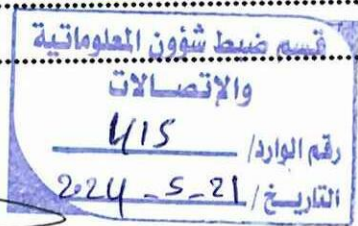 قسم ضبط شؤون المعلوماتية
والإتصالات
رقم الوارد/ 415
التاريخ/ 2024-5-21